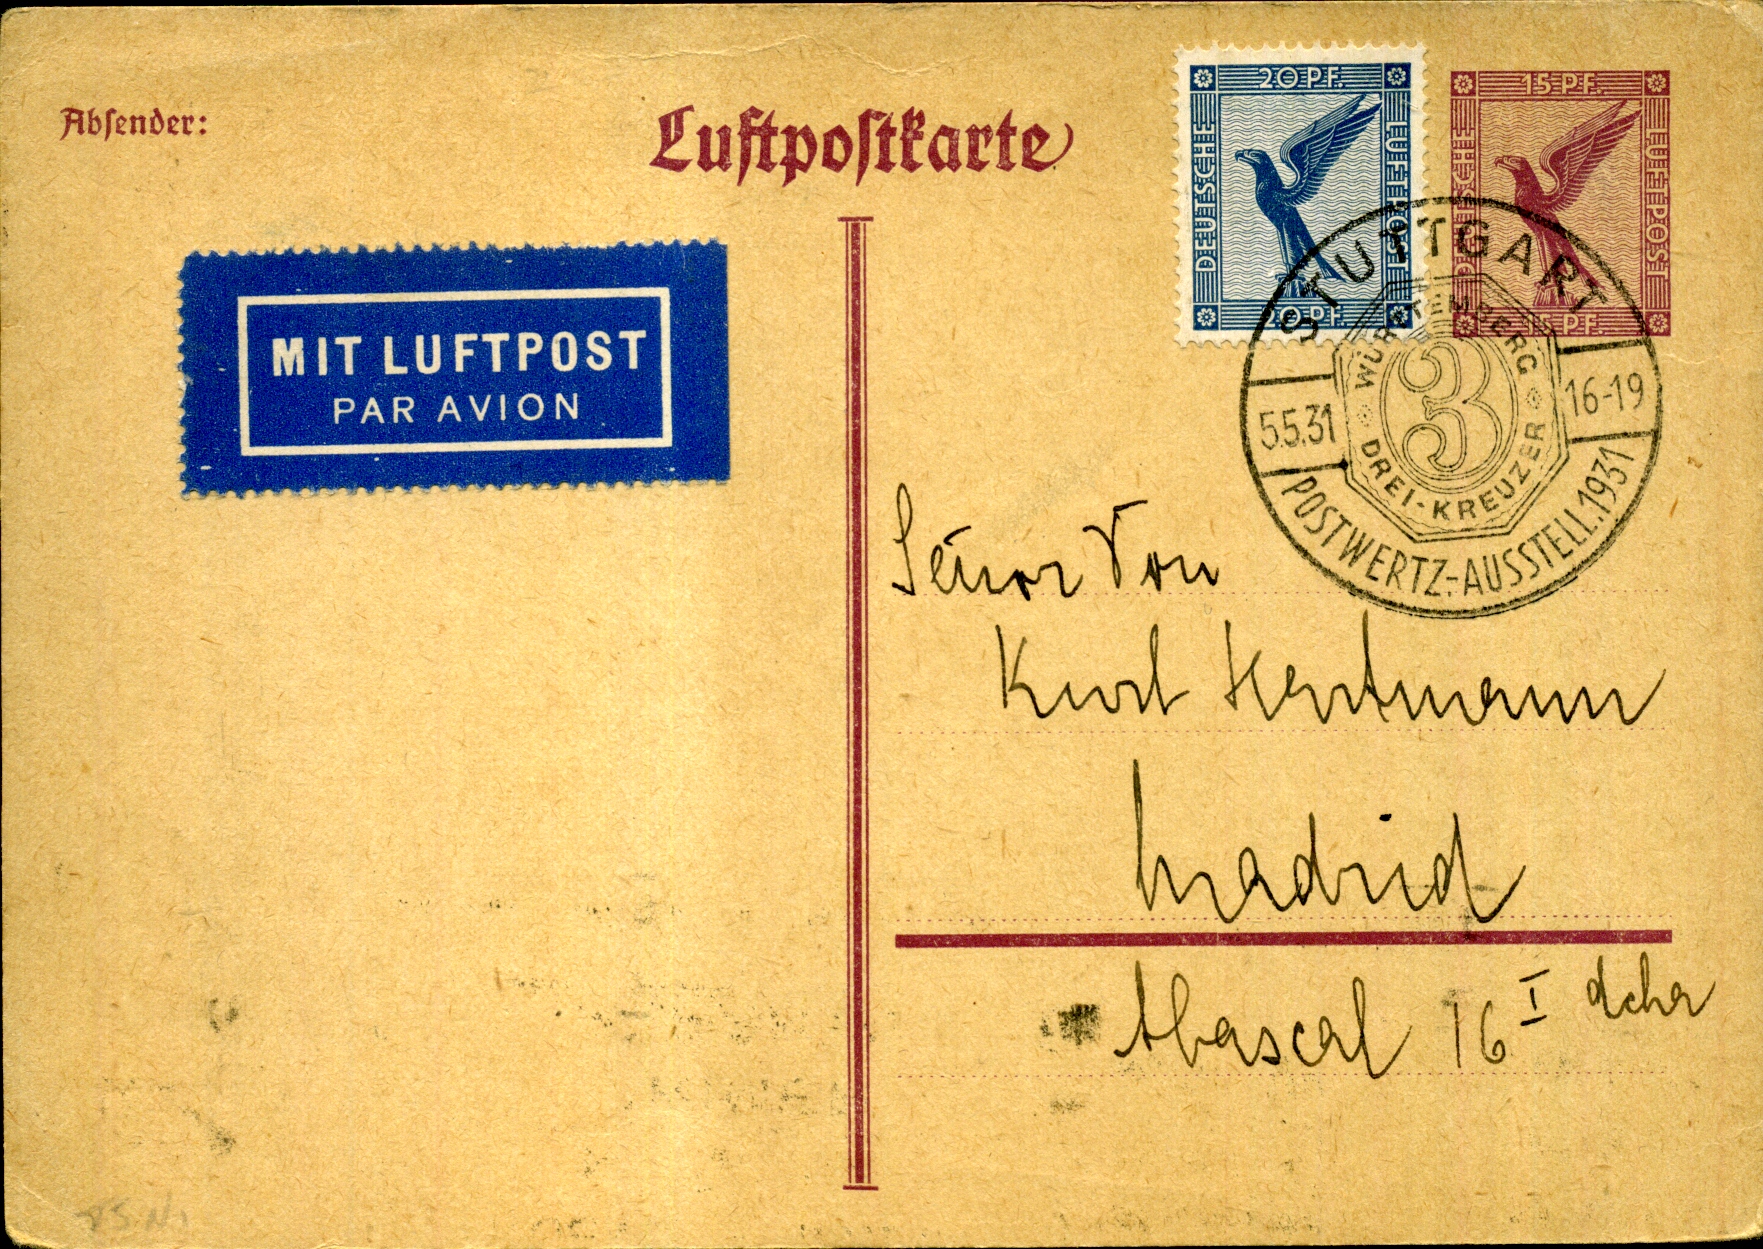 Absender:
Luftpostkarte
20 PF.
DEUTSCHE
LUFTPOST
20 PF.
15 PF.
DEUTSCHE
LUFTPOST
15 PF.
MIT LUFTPOST
PAR AVION
STUTTGART
WÜRTTEMBERG
3
DREI-KREUZER
5.5.31
16-19
POSTWERTZ.-AUSSTELL.1931
Señor Don
Kurt Hartmann
Madrid
Abascal 16 I dcha